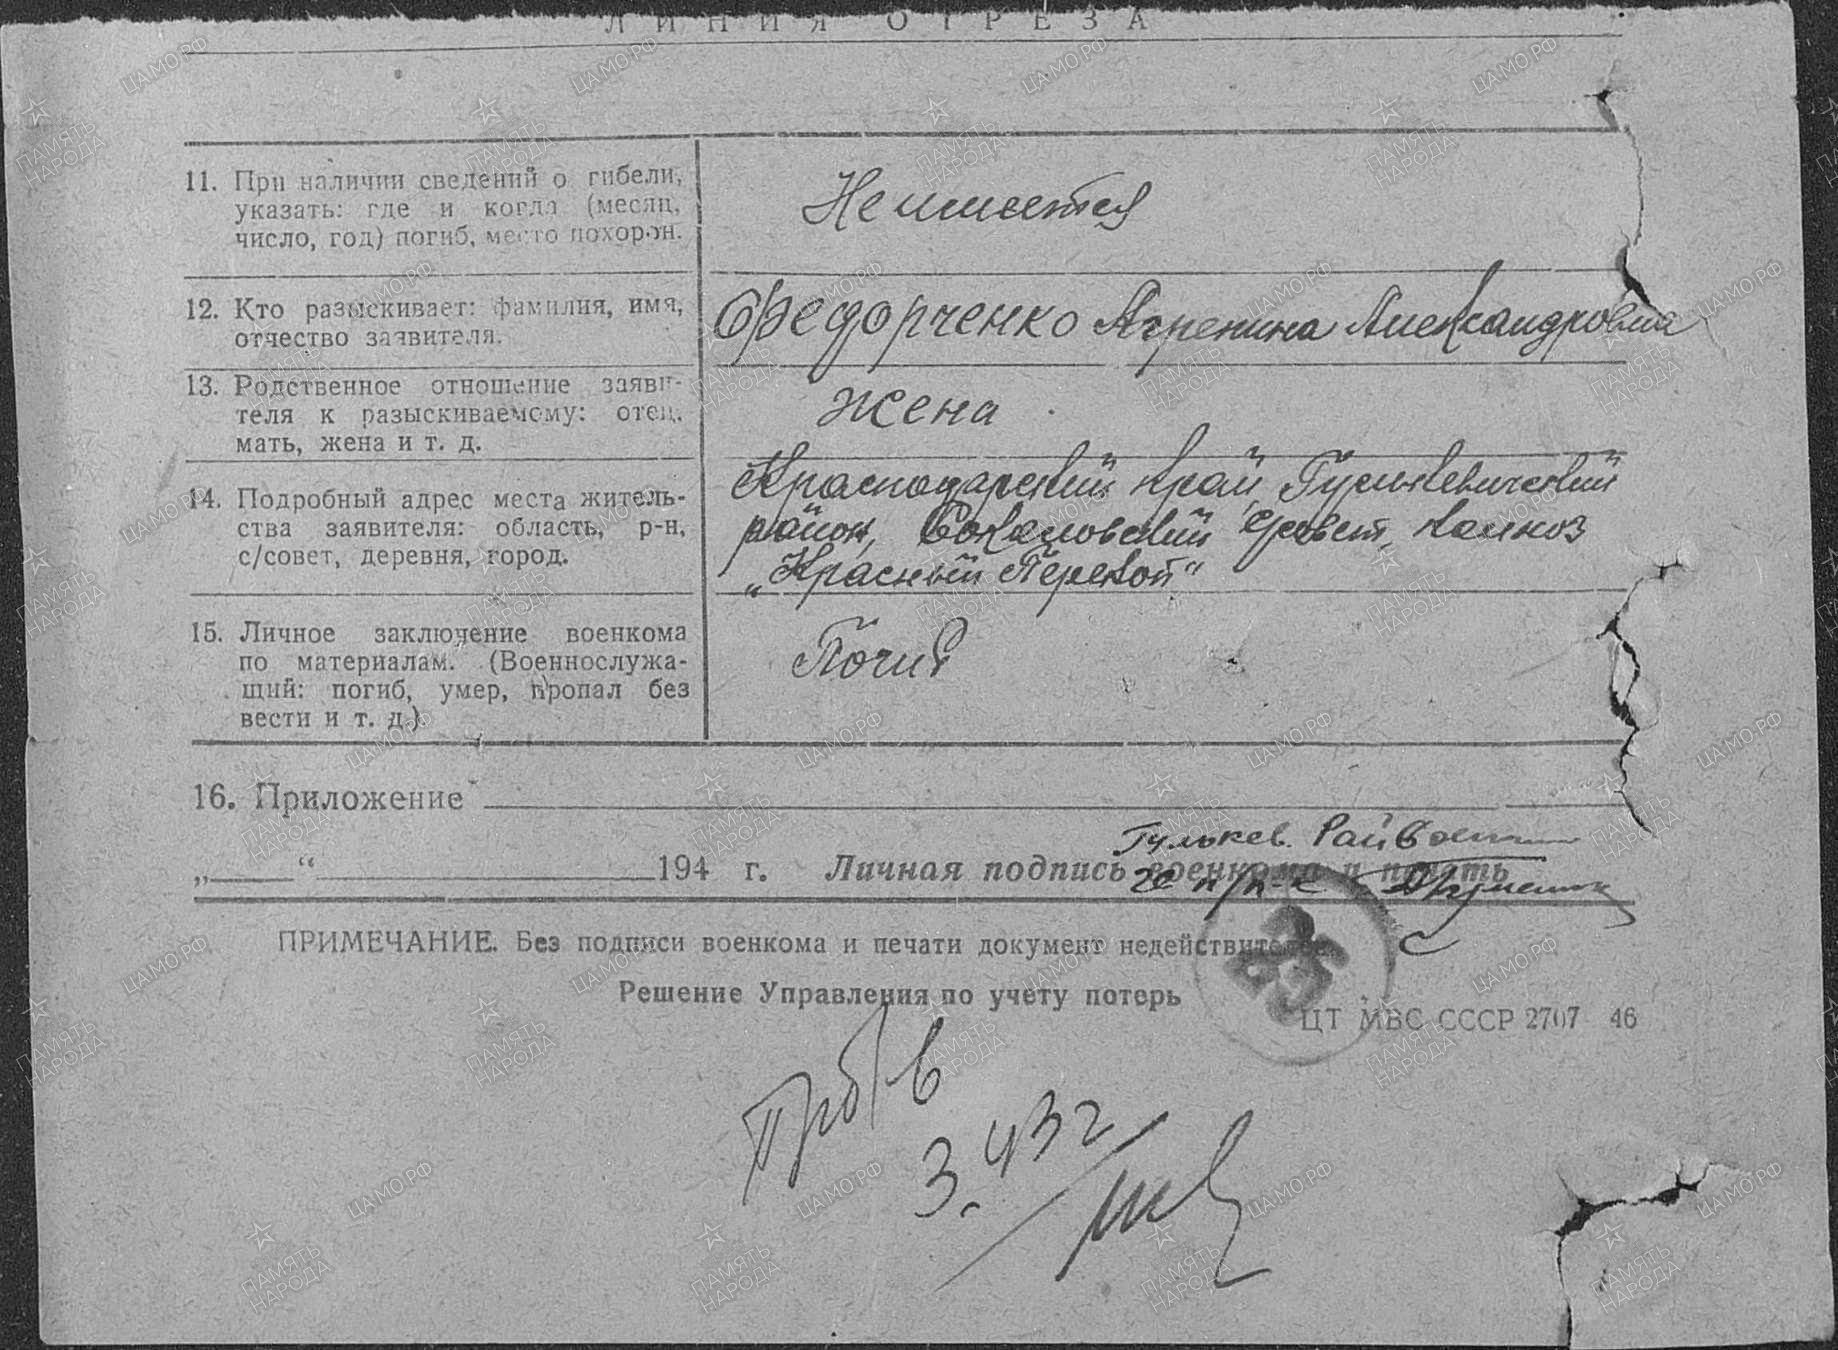 ЛИНИЯ ОТРЕЗА
11. При наличии сведений о гибели,
указать: где и когда (месяц,
число, год) погиб, место похорон.
Не имеется
12. Кто разыскивает: фамилия, имя,
отчество заявителя.
Федорченко Агрепина Александровна
13. Родственное отношение заяви-
теля к разыскиваемому: отец,
мать, жена и т. д.
Жена
14. Подробный адрес места житель-
ства заявителя: область, р-н,
с/совет, деревня, город.
Краснодарский край, Гулькевический
район, Соколовский с/совет, колхоз
„Красный Перекоп"
15. Личное заключение военкома
по материалам. (Военнослужа-
щий: погиб, умер, пропал без
вести и т. д.)
Погиб
16. Приложение
Гулькев. Рай
„ “ 194 г. Личная подпись военкома и печать
п/п-к
ПРИМЕЧАНИЕ. Без подписи военкома и печати документ недействителен.
Решение Управления по учету потерь
ЦТ МВС СССР 2707 46
в
3.43г
ПАМЯТЬ НАРОДА
ЦАМО.РФ